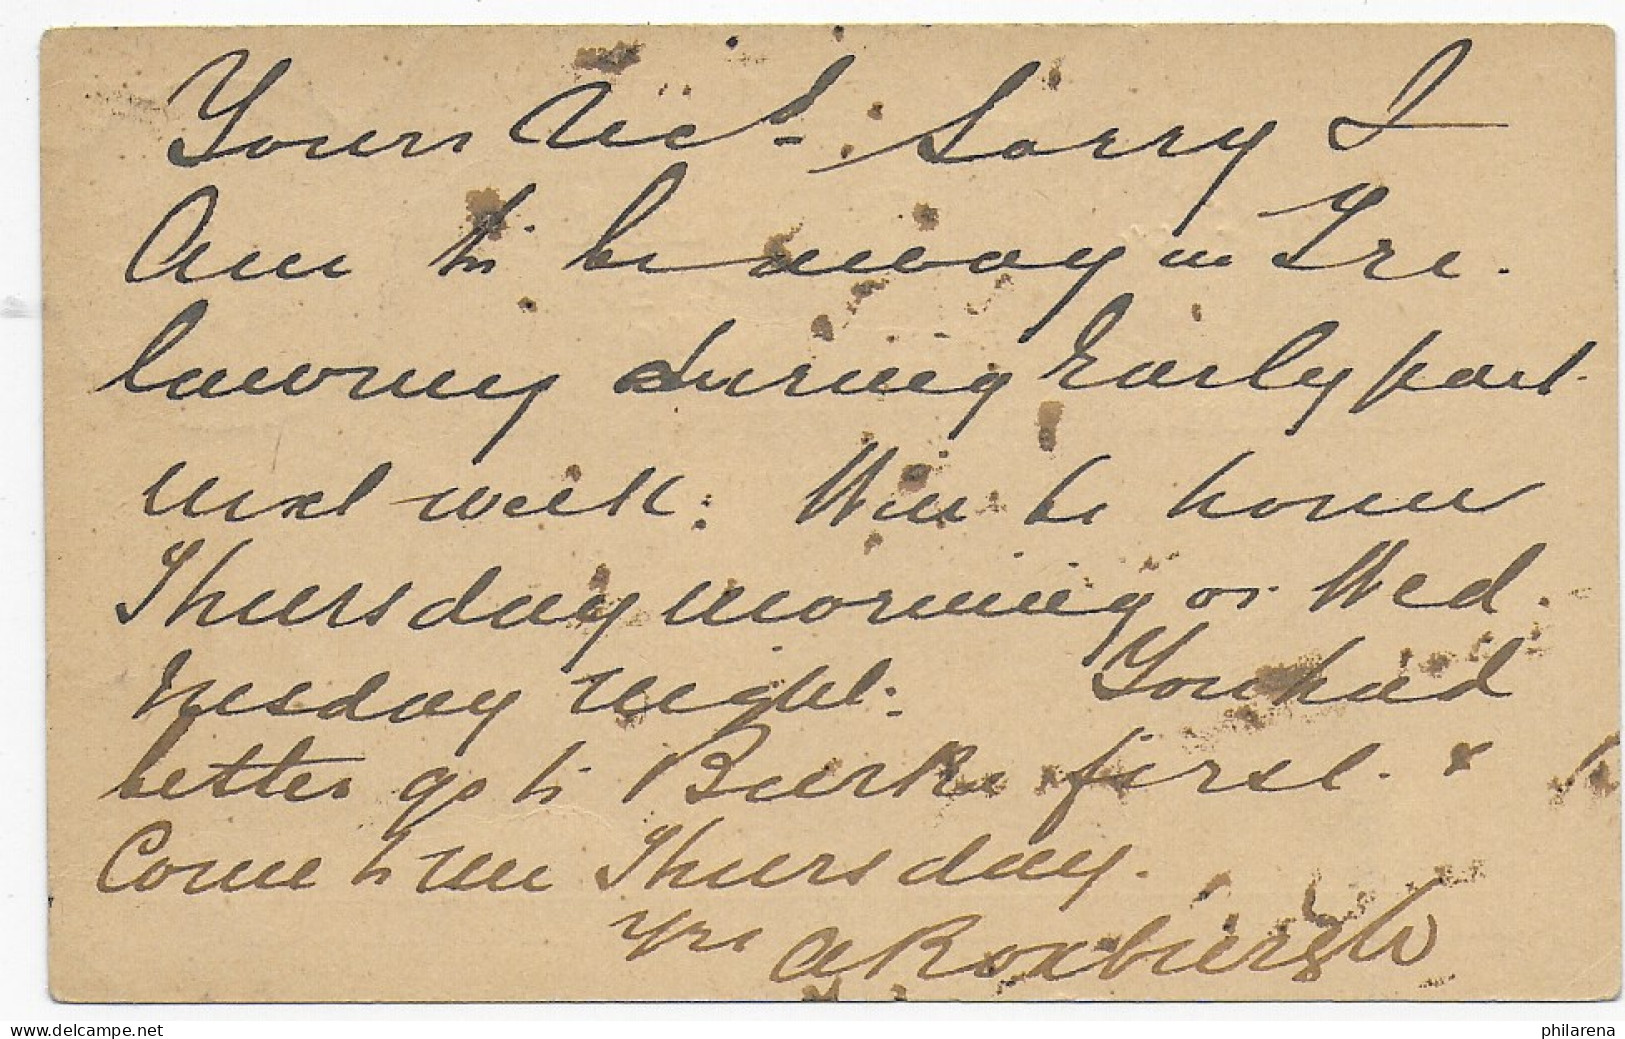 Yours Recd. Sorry I
Am to be away in Tre.
lawny during Early part
next week. Will be home
Thursday morning or Wed.
nesday night. You had
better go to Burke first. &
Come to me Thursday.
Yrs A Roxburgh
delcampe.net
philarena